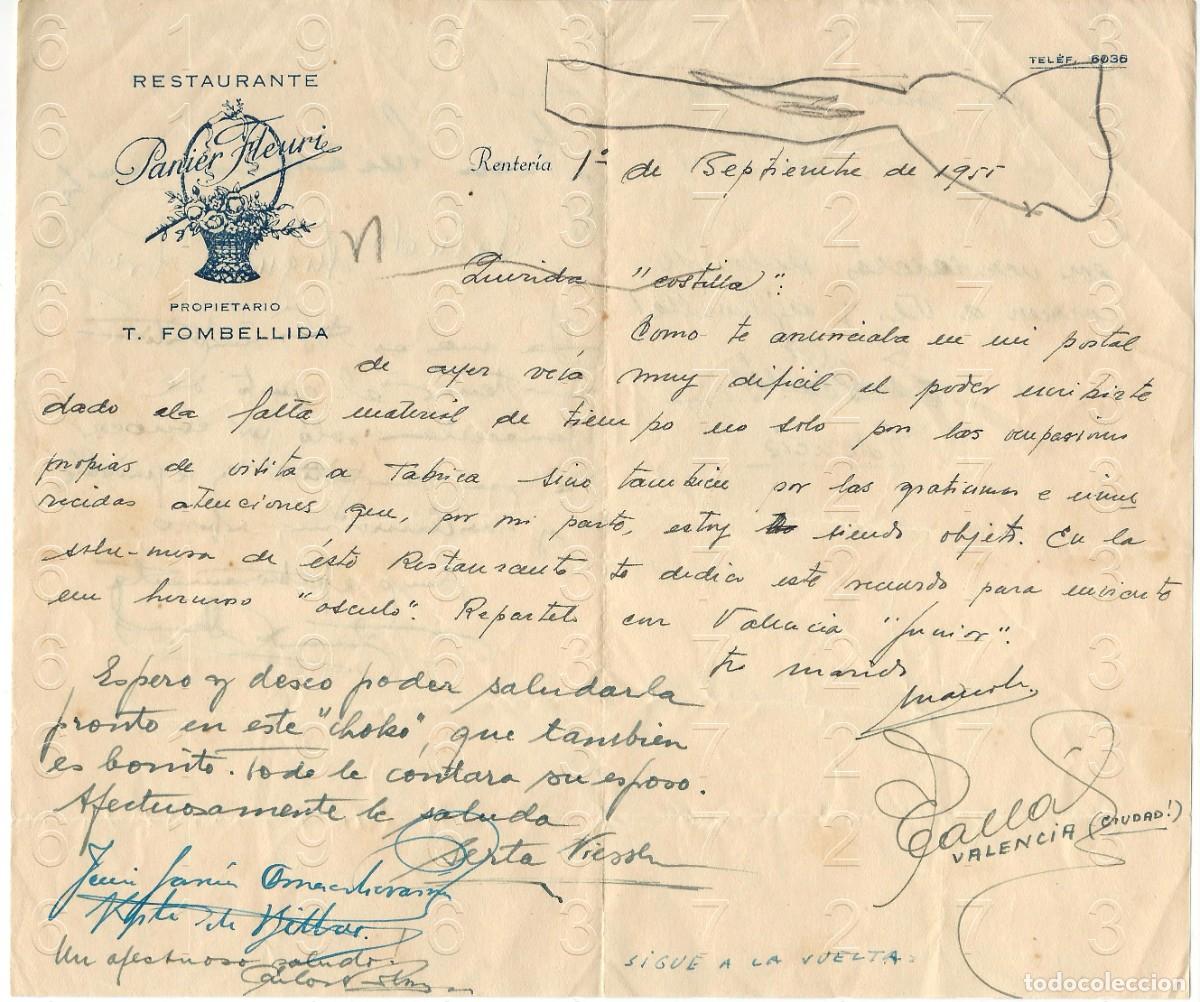 RESTAURANTE
Panier Fleuri
PROPIETARIO
T. FOMBELLIDA
TELÉF. 6035
Rentería 1º de Septiembre de 1955
Querida "costilla":
Como te anunciaba en mi postal
de ayer veía muy dificil el poder escribirte
dado a la falta material de tiempo no solo por las ocupaciones
propias de visita a Fabrica sino tambien por las gratisimas e inme
recidas atenciones que, por mi parte, estoy siendo objeto. En la
sobre-mesa de éste Restaurante te dedico este recuerdo para enviarte
un hermoso "osculo". Repartelo con Valencia "Junior".
tu marido
Manolo
Espero y deseo poder saludarla
pronto en este "choko", que tambien
es bonito. Todo le contara su esposo.
Afectuosamente le saluda
VALENCIA (CIUDAD!)
Un afectuoso saludo.
Carlos
SIGUE A LA VUELTA:
todocoleccion